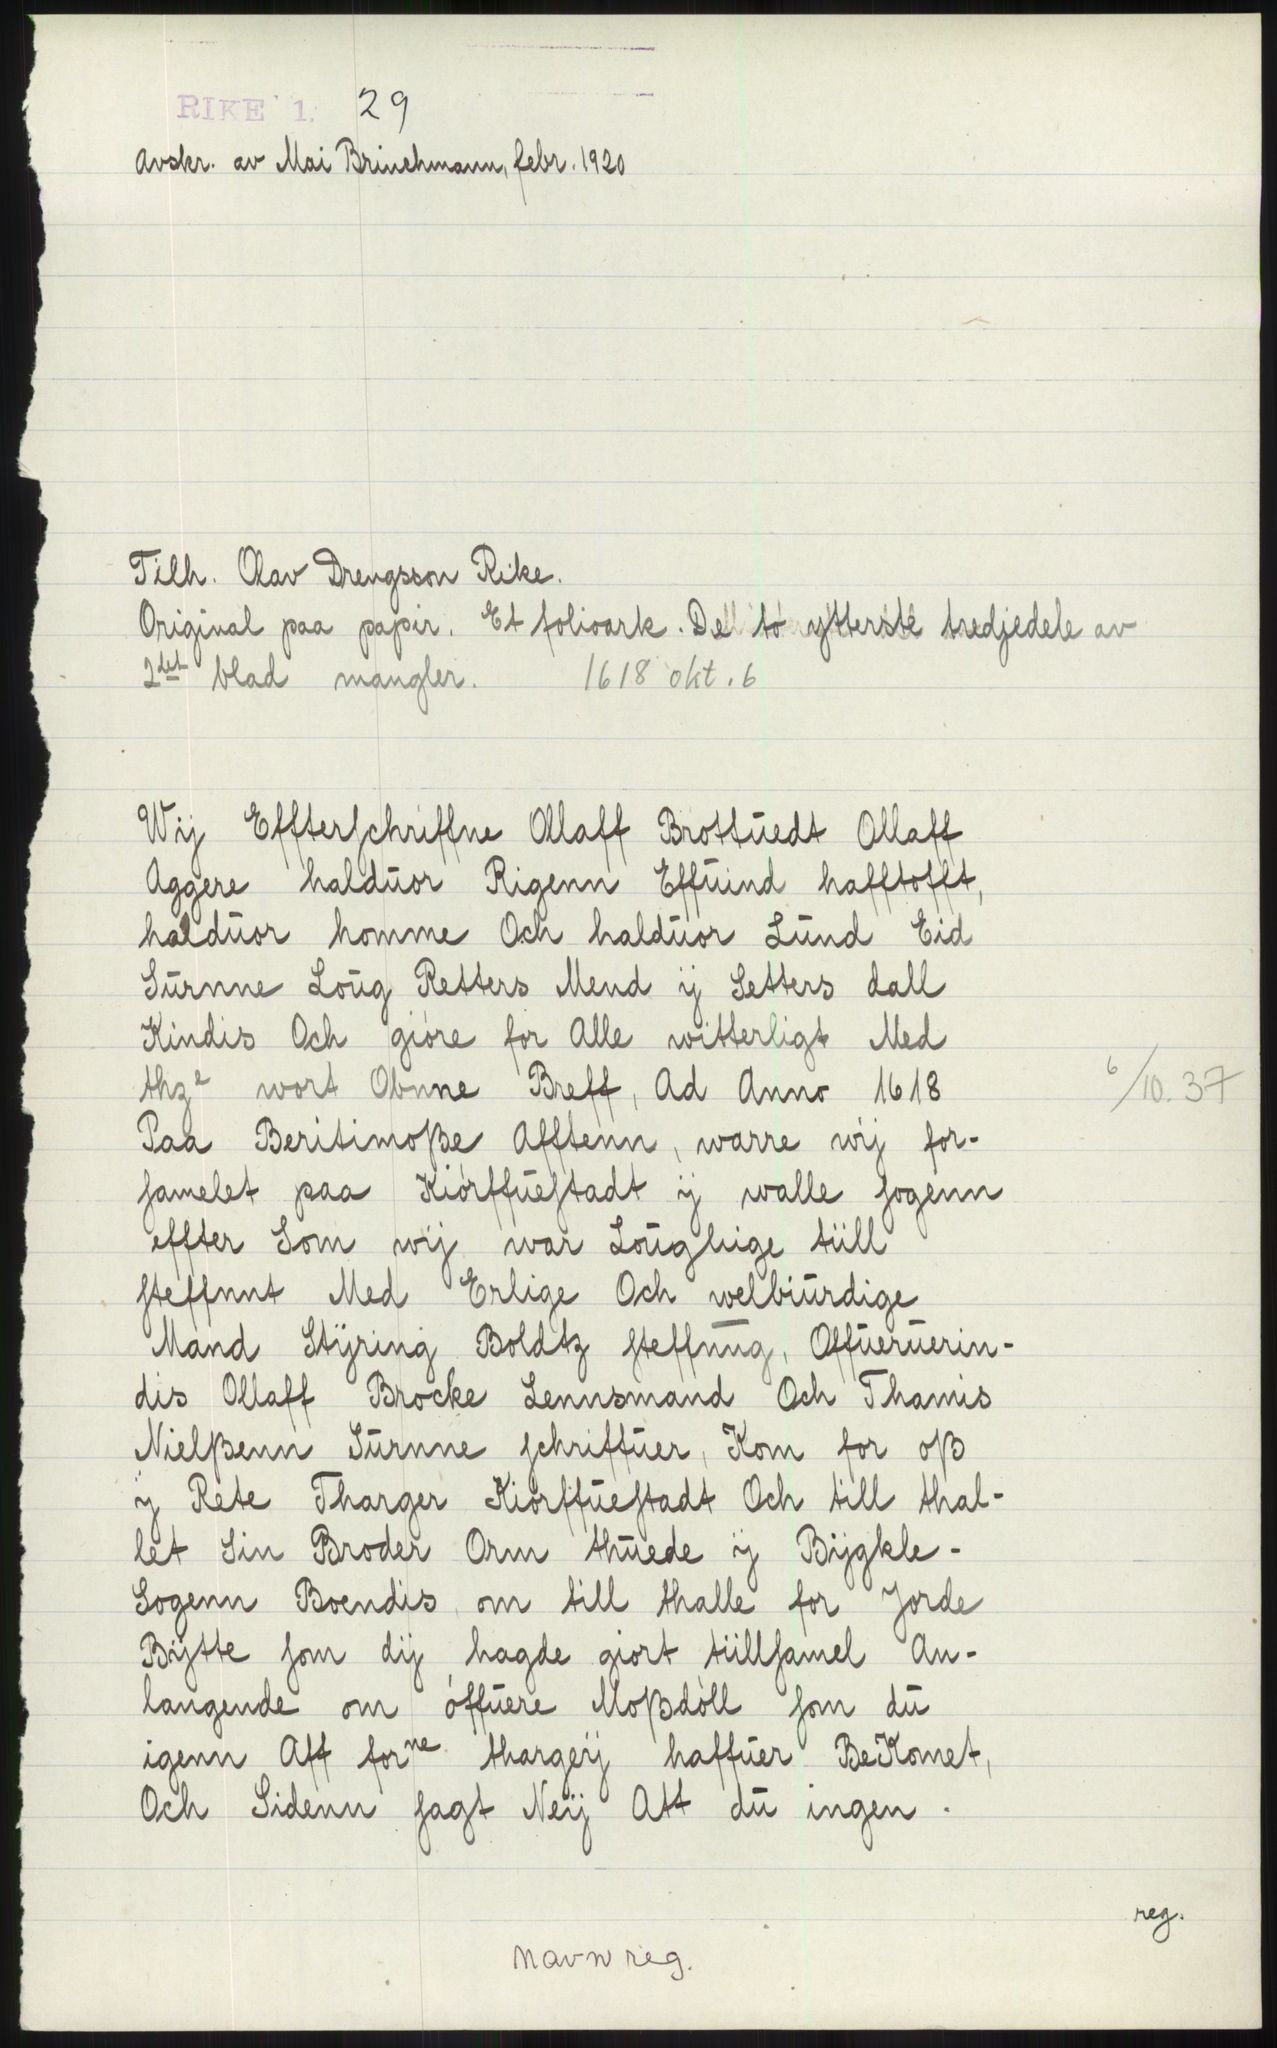 RIKE 1. 29
Avskr. av Mai Brinchmann, febr. 1920
Tilh. Olav Drengsson Rike.
Original paa papir. Et folioark. De to ytterste tredjedele av
2det blad mangler. 1618 okt. 6
Wij Effterschriffne Ollaff Brottuedt Ollaff
Aggere halduor Rigenn Effuind hafftofft,
halduor homme Och halduor Lund Eid
Surnne Loug Retters Mend ij Setters dall
Kindis Och giöre for Alle witterligt Med
thze wort Obnne Breff, Ad Anno 1618
6/10. 37
Paa Beritimoße Afftenn, warre wij for-
samelet paa Kiörffuestadt ij walle sogenn
effter Som wij war Loughige tiill
steffnnt Med Erlige Och welbiurdige
Mand Stijring Boldtz steffnug, Offueruerin-
dis Ollaff Brocke Lennsmand Och Thamis
Nielßenn Surnne schriffuer, Kom for oß
ij Rete Tharger Kiörffuestadt Och till thal-
let Sin Broder Orm thuede ij Bijgkle-
Sogenn Boendis, om till thalle for Jorde
Bijtte som dij hagde giort tiillsamel An-
langende om öffuere Moßdöll som du
igenn Aff forne thargeij haffuer BeKomet,
Och Sidenn sagt Neij Att du ingen.
reg.
Navnreg.